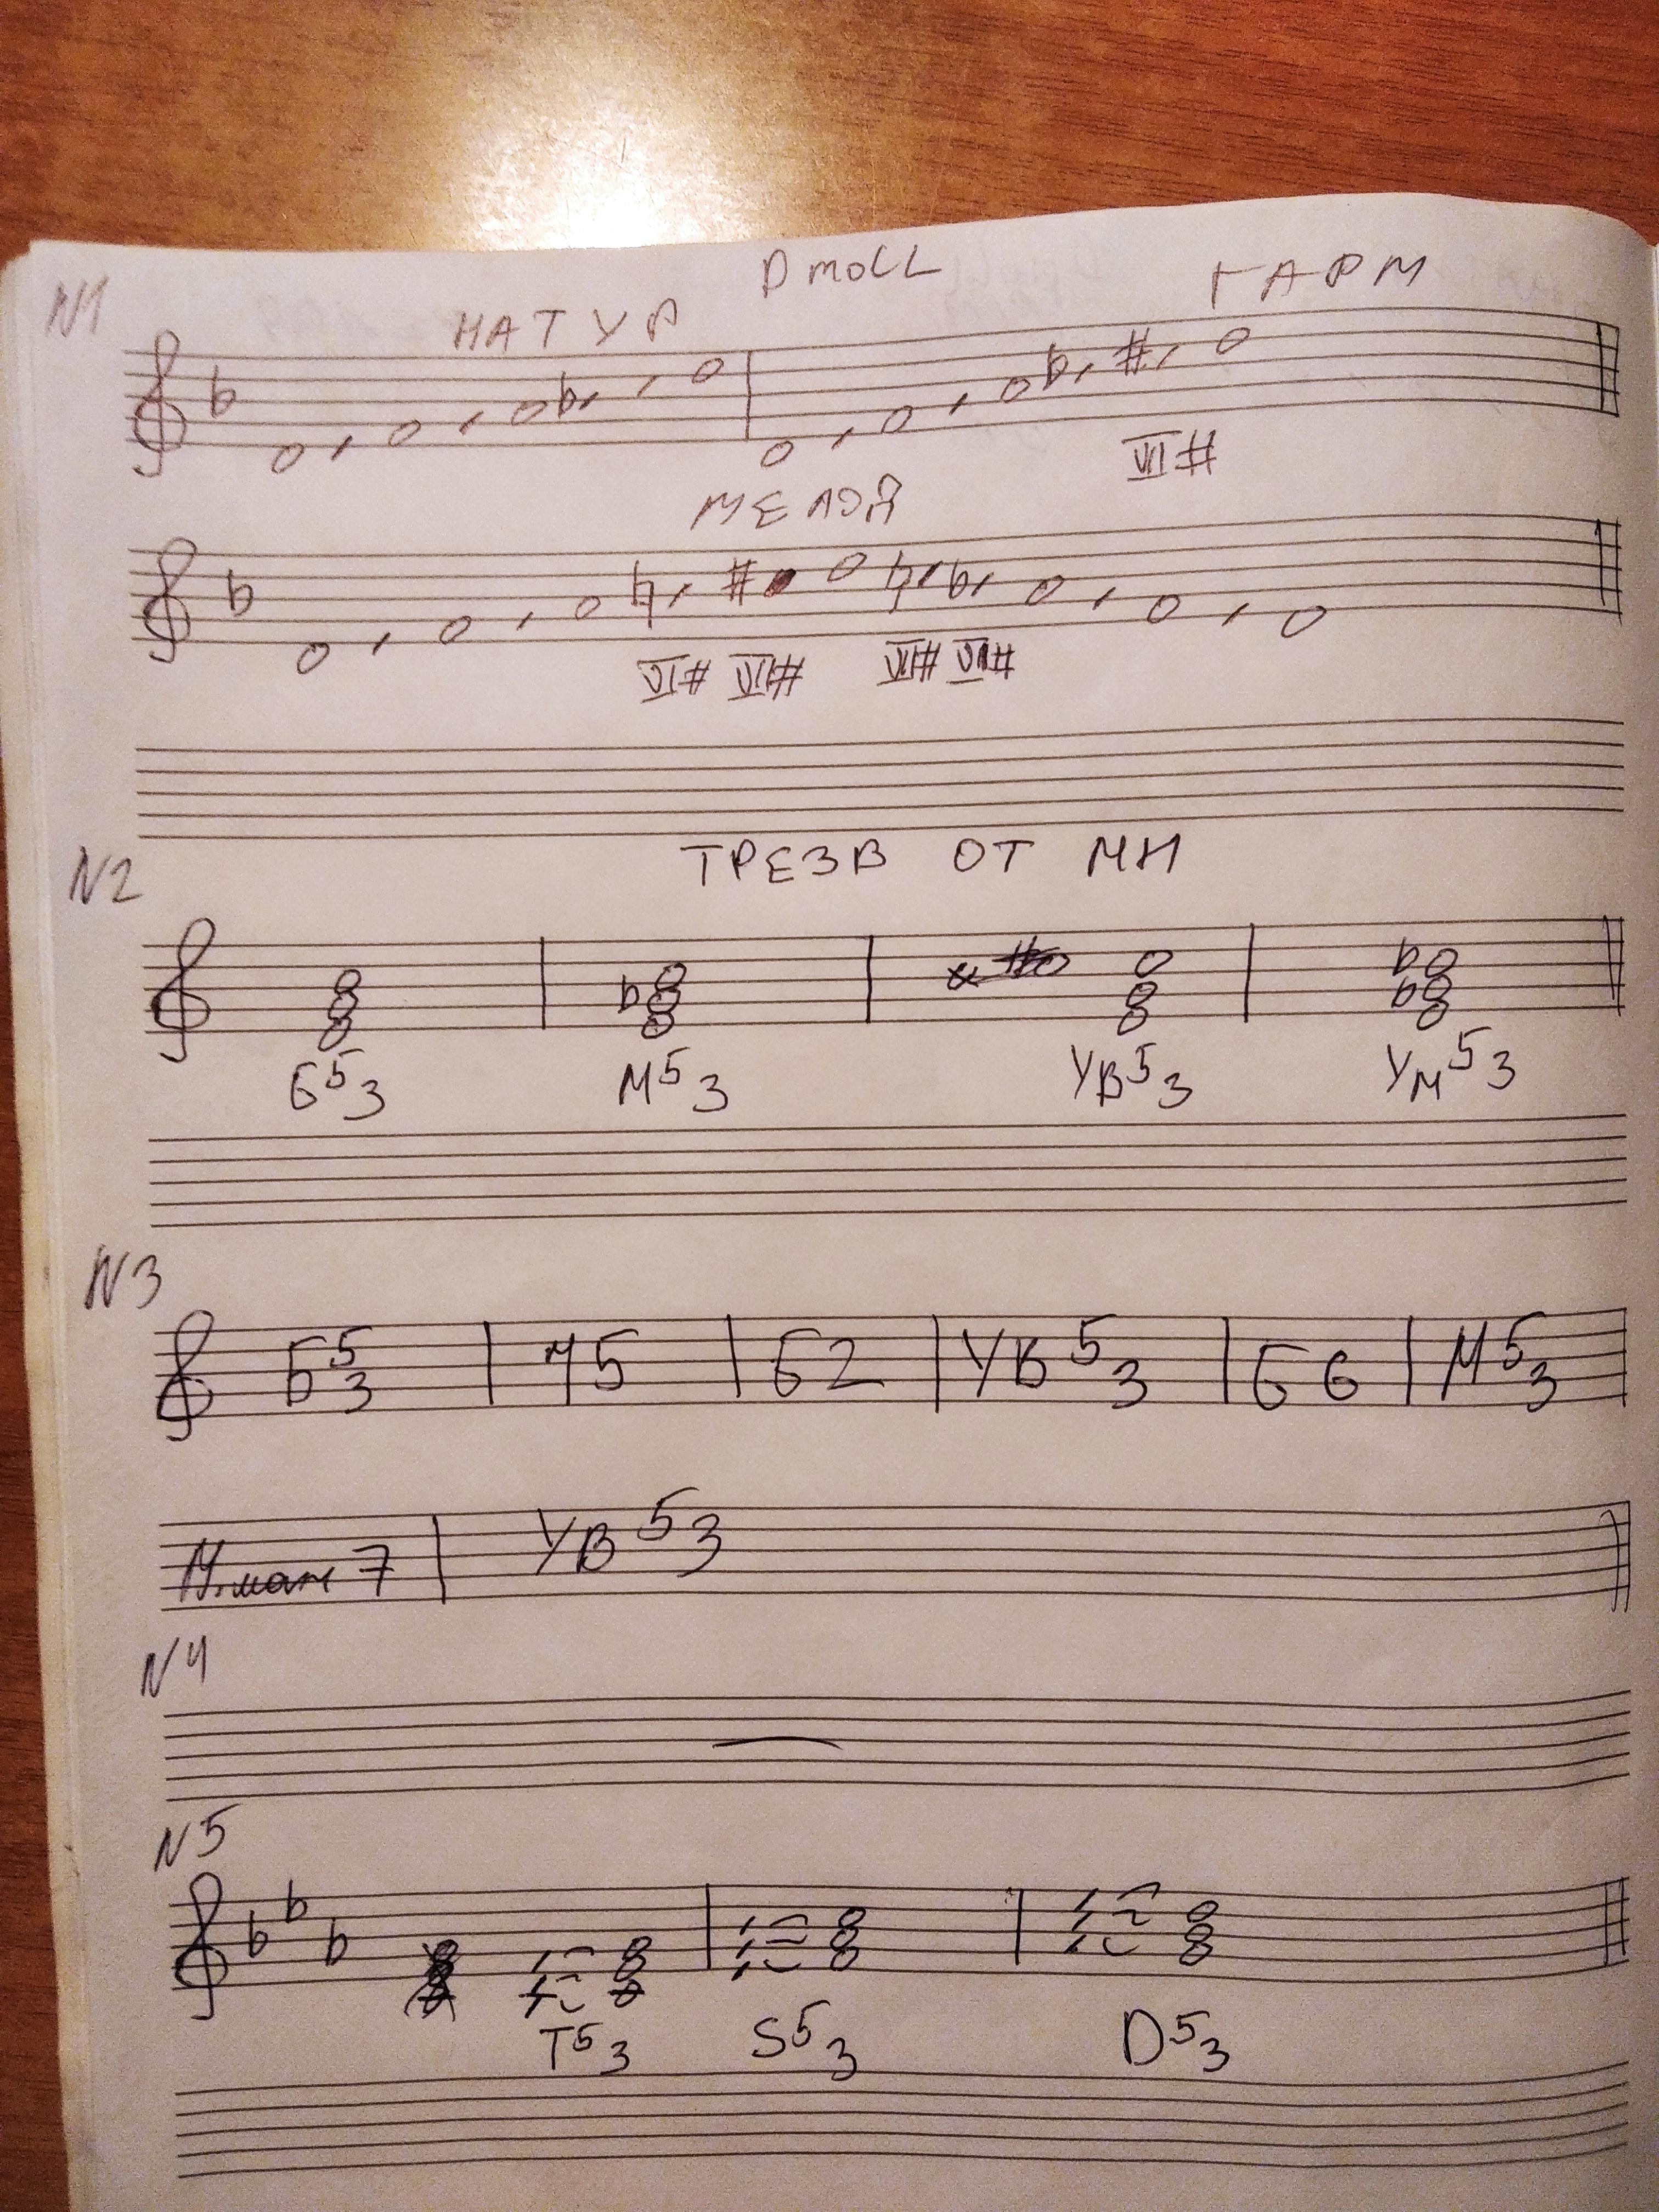 N1
D MOLL
НАТУР ГАРМ
VII#
МЕЛОД
VI# VII# VII# VI#
N2
ТРЕЗВ ОТ МИ
Б5 3 М5 3 УВ5 3 УМ5 3
N3
Б5 3 Ч5 Б2 УВ5 3 Б6 М5 3
7 УВ5 3
N4
N5
T5 3 S5 3 D5 3